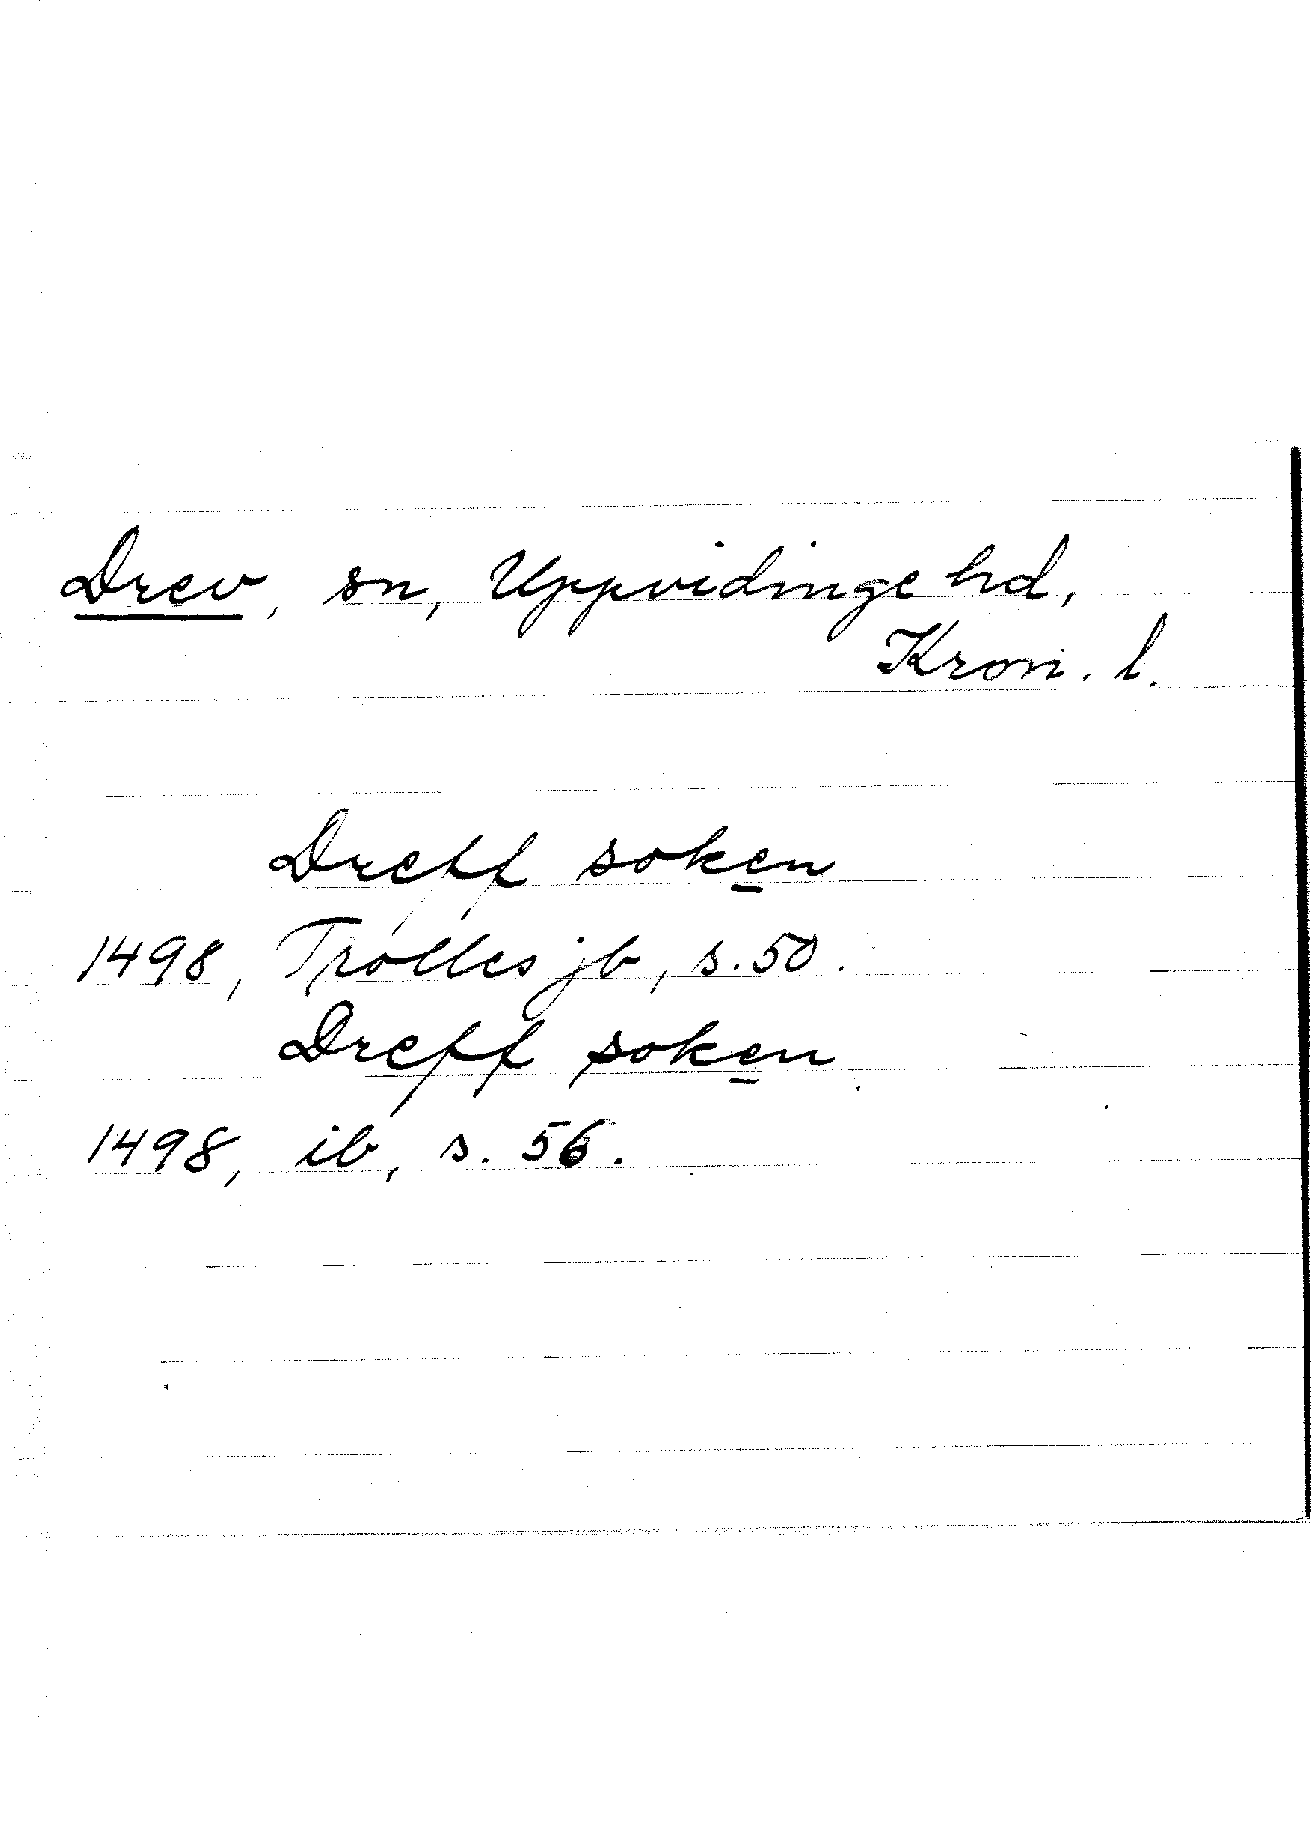 Drev, sn, Uppvidinge hd,
Kron. l.
Dreff soken
1498, Trolles jb, s. 50.
Dreff soken
1498, ib, s. 56.